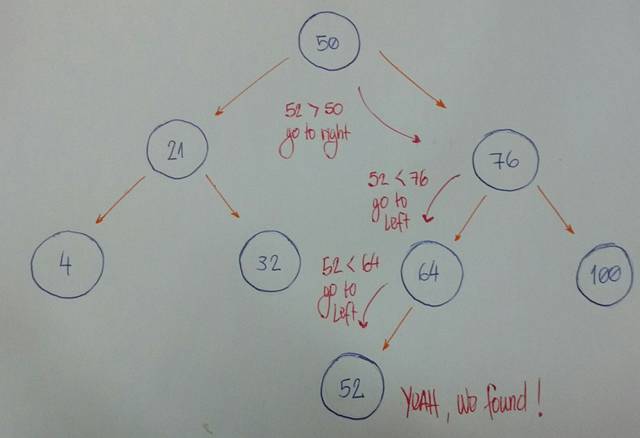 50
52 > 50
go to right
21
76
52 < 76
go to
left
4
32
52 < 64
go to
left
64
100
52
YEAH, we found!